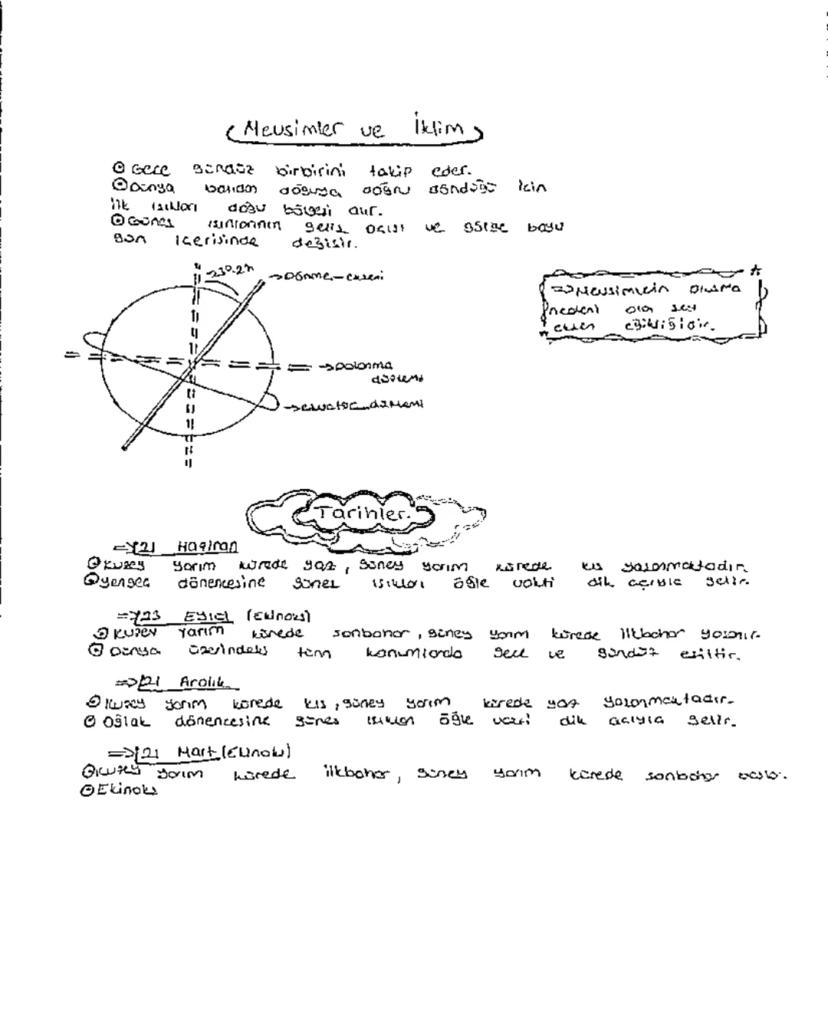 Mevsimler ve İklim
Gece gündüz birbirini takip eder.
Dünya batıdan doğuya doğru döndüğü için
ilk ışıkları doğu bölgesi alır.
Güneş ışınlarının geliş açısı ve gölge boyu
gün içerisinde değişir.
23°.27'
→Dönme ekseni
⇒Mevsimlerin oluşma
nedeni olan şey
eksen eğikliğidir.
→Dolanma
düzlemi
→ekvator düzlemi
Tarihler.
⇒21 Haziran
Kuzey yarım kürede yaz, güney yarım kürede kış yaşanmaktadır.
Yengeç dönencesine güneş ışıkları öğle vakti dik açıyla gelir.
⇒23 Eylül (Ekinoks)
Kuzey Yarım kürede sonbahar, güney yarım kürede ilkbahar yaşanır.
Dünya üzerindeki tüm konumlarda gece ve gündüz eşittir.
⇒21 Aralık
Kuzey yarım kürede kış, güney yarım kürede yaz yaşanmaktadır.
Oğlak dönencesine güneş ışıkları öğle vakti dik açıyla gelir.
⇒21 Mart (Ekinoks)
Kuzey yarım kürede ilkbahar, güney yarım kürede sonbahar başlar.
Ekinoks